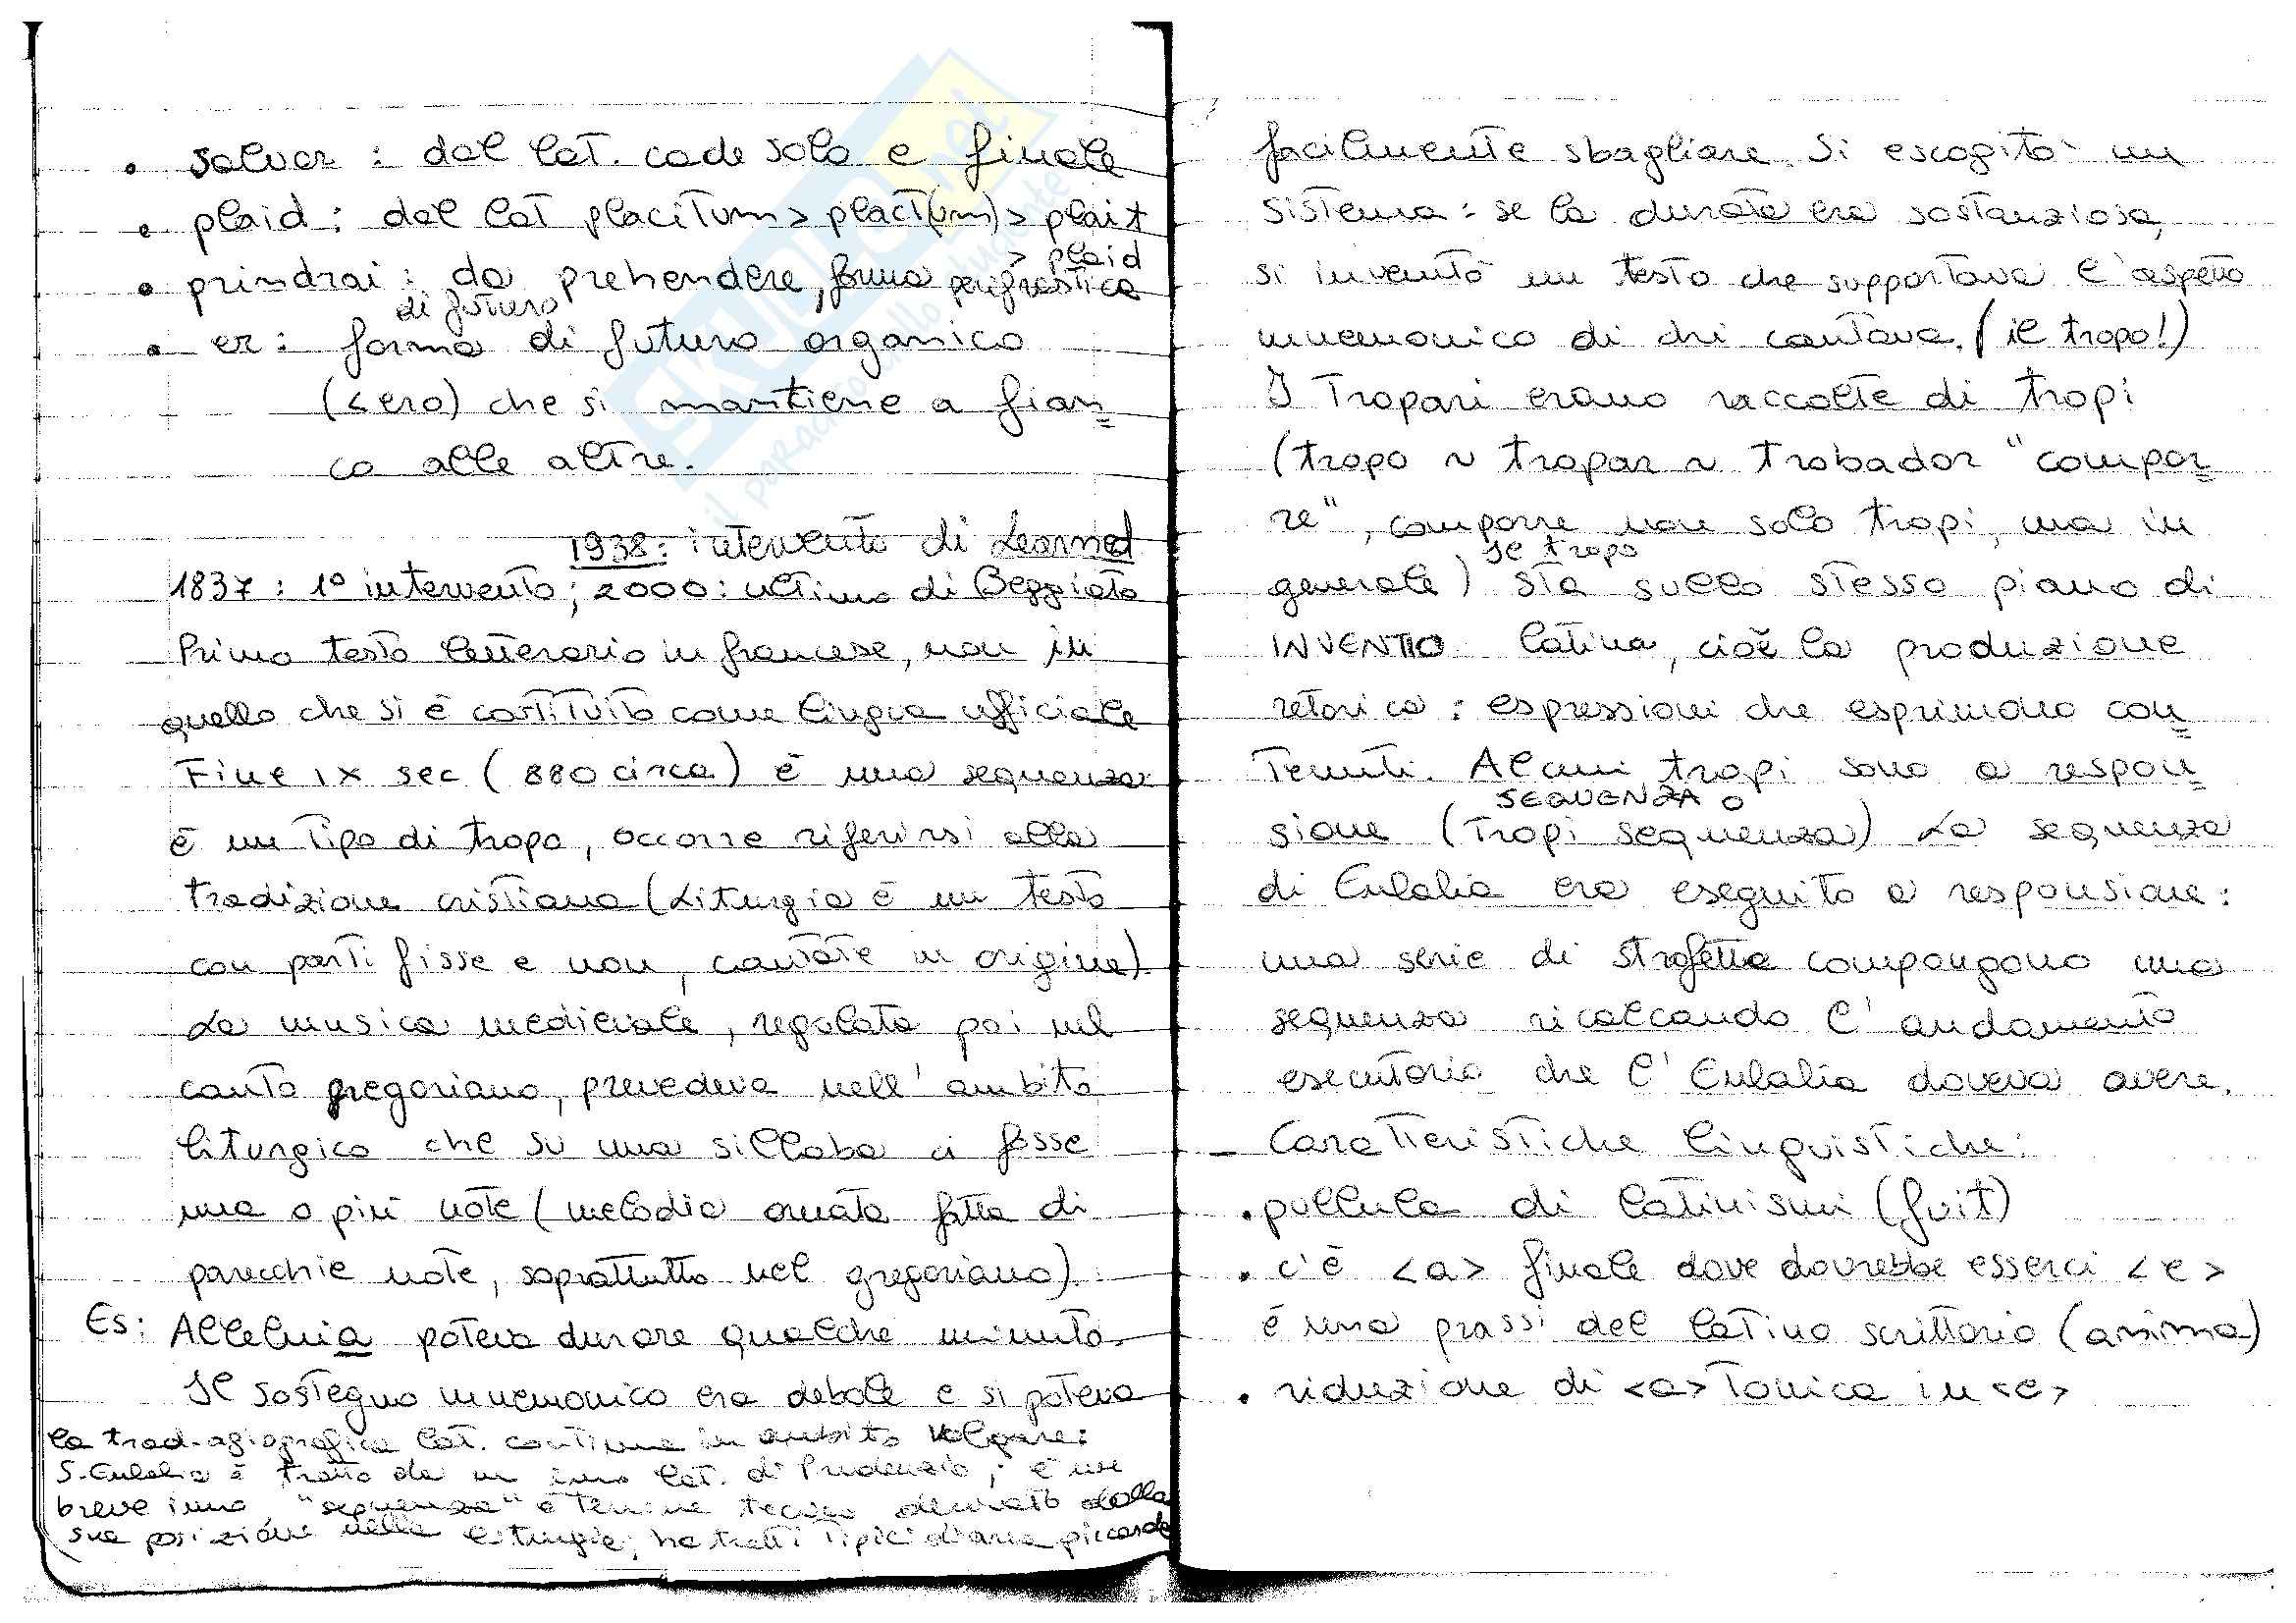 • salvar : dal lat. cade solo e finale
• plaid : dal lat placitum > plact(um) > plait
> plaid
• prindrai : da prehendere, forma perifrastica
di futuro
• er : forma di futuro organico
(< ero) che si mantiene a fian=
co alle altre.
1938: intervento di Learned
1837 : 1° intervento ; 2000 : ultimo di Beggiato
Primo testo letterario in francese, non in
quello che si è costituito come lingua ufficiale
Fine IX sec (880 circa) è una sequenza
è un tipo di tropo, occorre riferirsi alla
tradizione cristiana (Liturgia è un testo
con parti fisse e non, cantate in origine)
La musica medievale, regolata poi nel
canto gregoriano, prevedeva nell'ambito
liturgico che su una sillaba ci fosse
una o più note (melodia ornata fatta di
parecchie note, soprattutto nel gregoriano).
Es: Alleluia poteva durare qualche minuto.
Il sostegno mnemonico era debole e si poteva
la trad. agiografica lat. continua in ambito volgare:
S. Eulalia è tratto da un inno lat. di Prudenzio; è un
breve inno "sequenza" è termine tecnico derivato dalla
sua posizione nella liturgia; ha tratti tipici di area piccarda
facilmente sbagliare. Si escogitò un
sistema : se la durata era sostanziosa,
si inventò un testo che supportava l'aspetto
mnemonico di chi cantava. (il tropo!)
I Tropari erano raccolte di tropi
(tropo ~ tropar ~ trobador "compor=
re", comporre non solo tropi, ma in
generale) Il tropo sta sullo stesso piano di
INVENTIO latina, cioè la produzione
retorica : espressioni che esprimono con=
tenuti. Alcuni tropi sono a respon=
SEQUENZA o
sione (Tropi sequenza) La sequenza
di Eulalia era eseguito a responsione :
una serie di strofette compongono una
sequenza ricalcando l'andamento
esecutorio che l'Eulalia doveva avere.
- Caratteristiche linguistiche :
• pullula di latinismi (fuit)
• c'è <a> finale dove dovrebbe esserci <e>
è una prassi del latino scrittorio (anima)
• riduzione di <a> tonica in <e>